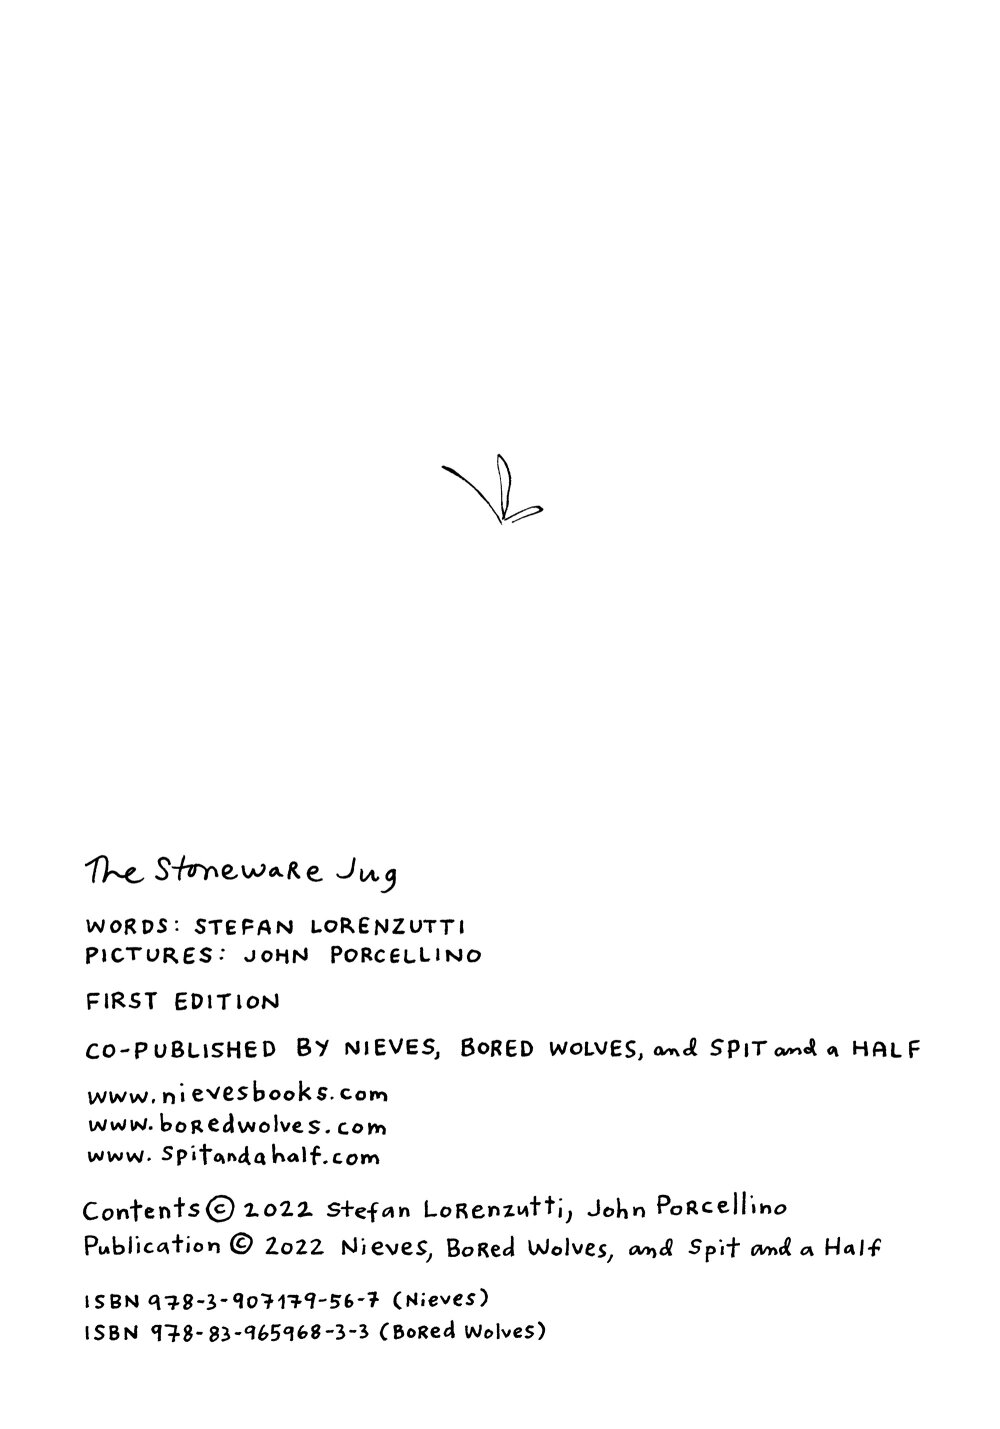 The Stoneware Jug
WORDS: STEFAN LORENZUTTI
PICTURES: JOHN PORCELLINO
FIRST EDITION
CO-PUBLISHED BY NIEVES, BORED WOLVES, and SPIT and a HALF
www.nievesbooks.com
www.boredwolves.com
www.spitandahalf.com
Contents © 2022 Stefan Lorenzutti, John Porcellino
Publication © 2022 Nieves, Bored Wolves, and Spit and a Half
ISBN 978-3-907179-56-7 (Nieves)
ISBN 978-83-965968-3-3 (Bored Wolves)